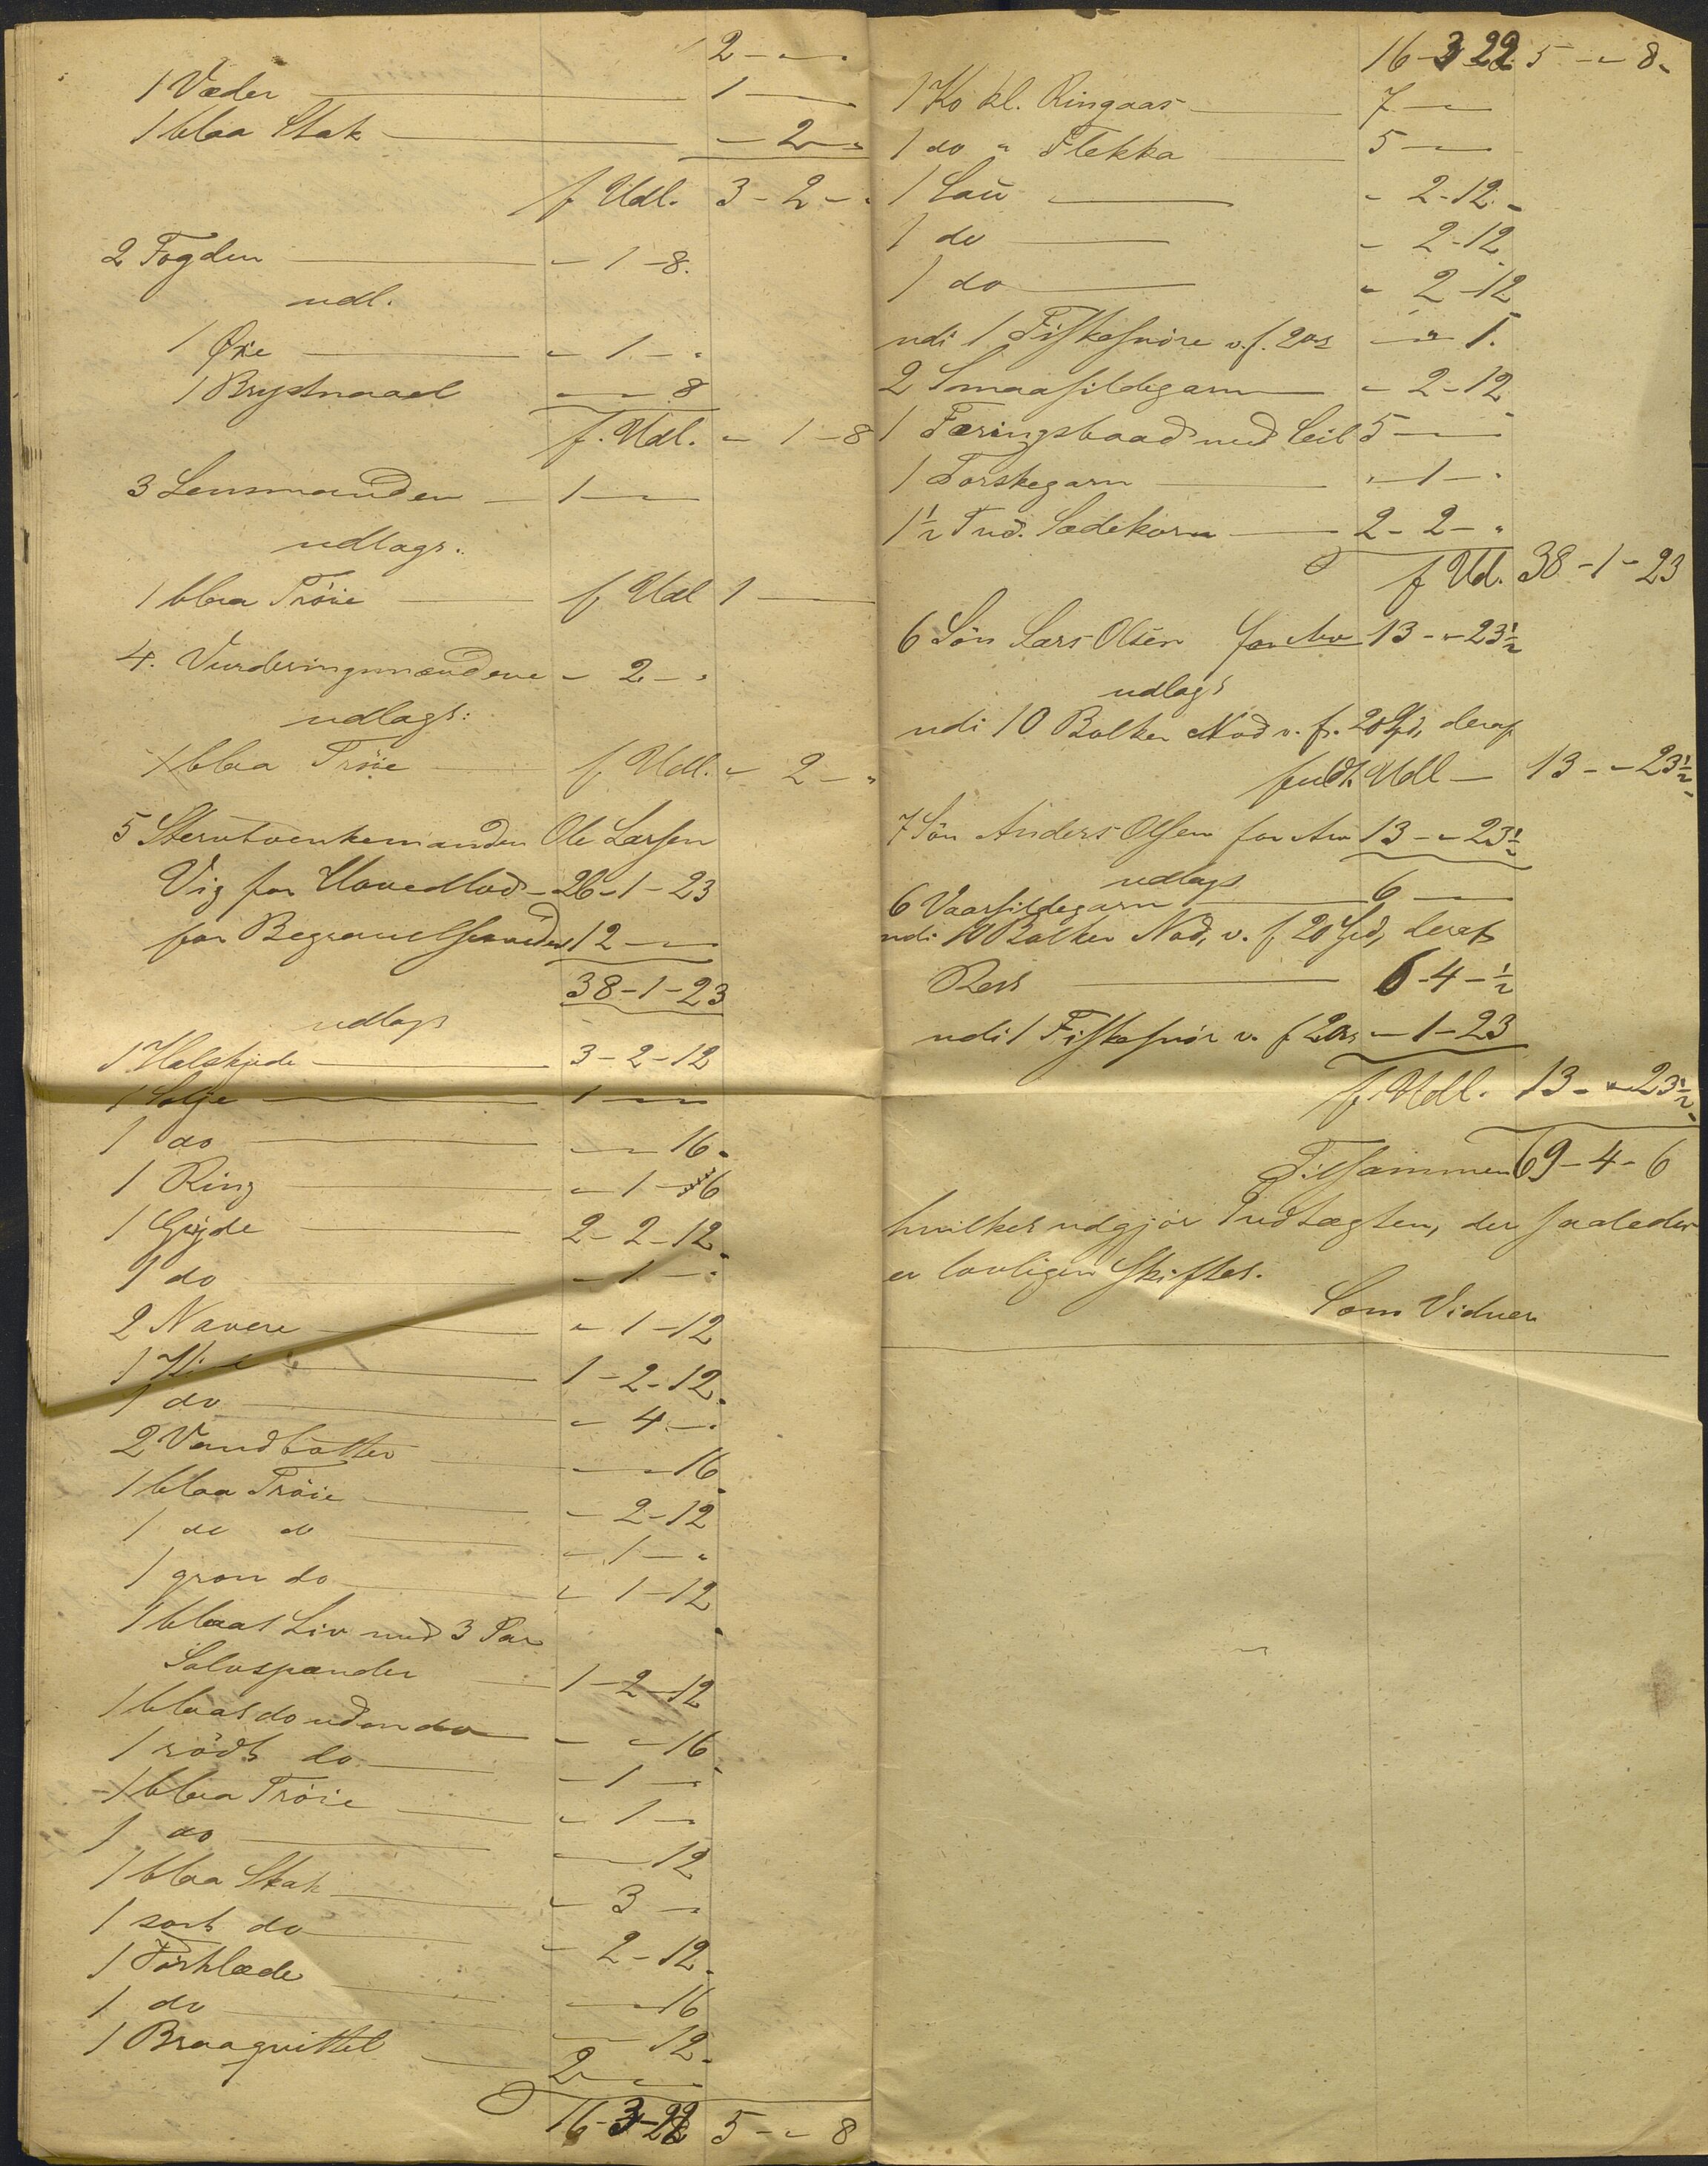 2 - " - "
1 Væder — 1 —
1 blaa Stak — " - 2 - "
f Udl. 3 - 2 - "
2 Fogden — " - 1 - 8.
udl.
1 Øxe — " - 1 - "
1 Brystnaael — " - " - 8
f. Udl. " - 1 - 8
3 Lensmanden — 1 - " - "
udlagt.
1 blaa Tröie — f Udl 1 —
4. Vurderingsmændene " - 2 - "
udlagt:
1 blaa Tröie — f Udl. " - 2 - "
5 Stervboenkemanden Ole Larsen
Vig for Hovedlod - 26 - 1 - 23
for Begravelsesudr 12 - " -
38 - 1 - 23
udlagt
1 Halskjede — 3 - 2 - 12
1 Sölje — 1 - " -
1 do — " - " - 16.
1 Ring — " - 1 - 16
1 Gryde — 2 - 2 - 12
1 do — " - 1 - "
2 Navere — " - 1 - 12
1 — 1 - 2 - 12
1 do — " - 4 - "
2 Vandbötter — " - " - 16
1 blaa Tröie — " - 2 - 12
1 do do — " - 1 - "
1 grön do — " - 1 - 12
1 blaat Liv med 3 Par
Sölvspænder — 1 - 2 - 12
1 blaat do uden do — " - " - 16
1 rödt do — " - 1 - "
1 blaa Tröie — " - 1 - "
1 do — " - " - 12
1 blaa Stak — " - 3 - "
1 sort do — " - 2 - 12
1 Forklæde — " - " - 16
1 do — " - " - 12.
1 Braagvittel — 2 - " - "
16 - 3 - 22 5 - " - 8
16 - 3 22 5 - " - 8 -
1 Ko kl. Ringaas — 7 - "
1 do " Flekka — 5 - "
1 Sau — " - 2 - 12 -
1 do — " - 2 - 12
1 do — " - 2 - 12
udi 1 Fiskesnöre v. f. 2 ors " - " 1.
2 Smaasildegarn — " - 2 - 12
1 Færingsbaad med Seil 5 - " -
1 Torskegarn — " - 1 - "
1½ Tnd. Sædekorn — 2 - 2 - "
f Ud. 38 - 1 - 23
6 Sön Lars Olsen for Arv 13 - " - 23½
udlagt
udi 10 Bolker Nod v. f. 20 Spd, deraf
fuldt Udl — 13 - " - 23½
7 Sön Anders Olsen for Arv 13 - " - 23½
udlagt
6 Vaarsildegarn — 6 - "
udi 10 Bolker Nod, v. f 20 Spd, deraf
Rest — 6 - 4 - ½
udi 1 Fiskesnör v. f 2 ors " - 1 - 23
f. Udl. 13 - " - 23½
Tilsammen 69 - 4 - 6
hvilket udgjör Indtægten, der saaledes
er lovligen Skiftet.
Som Vidner